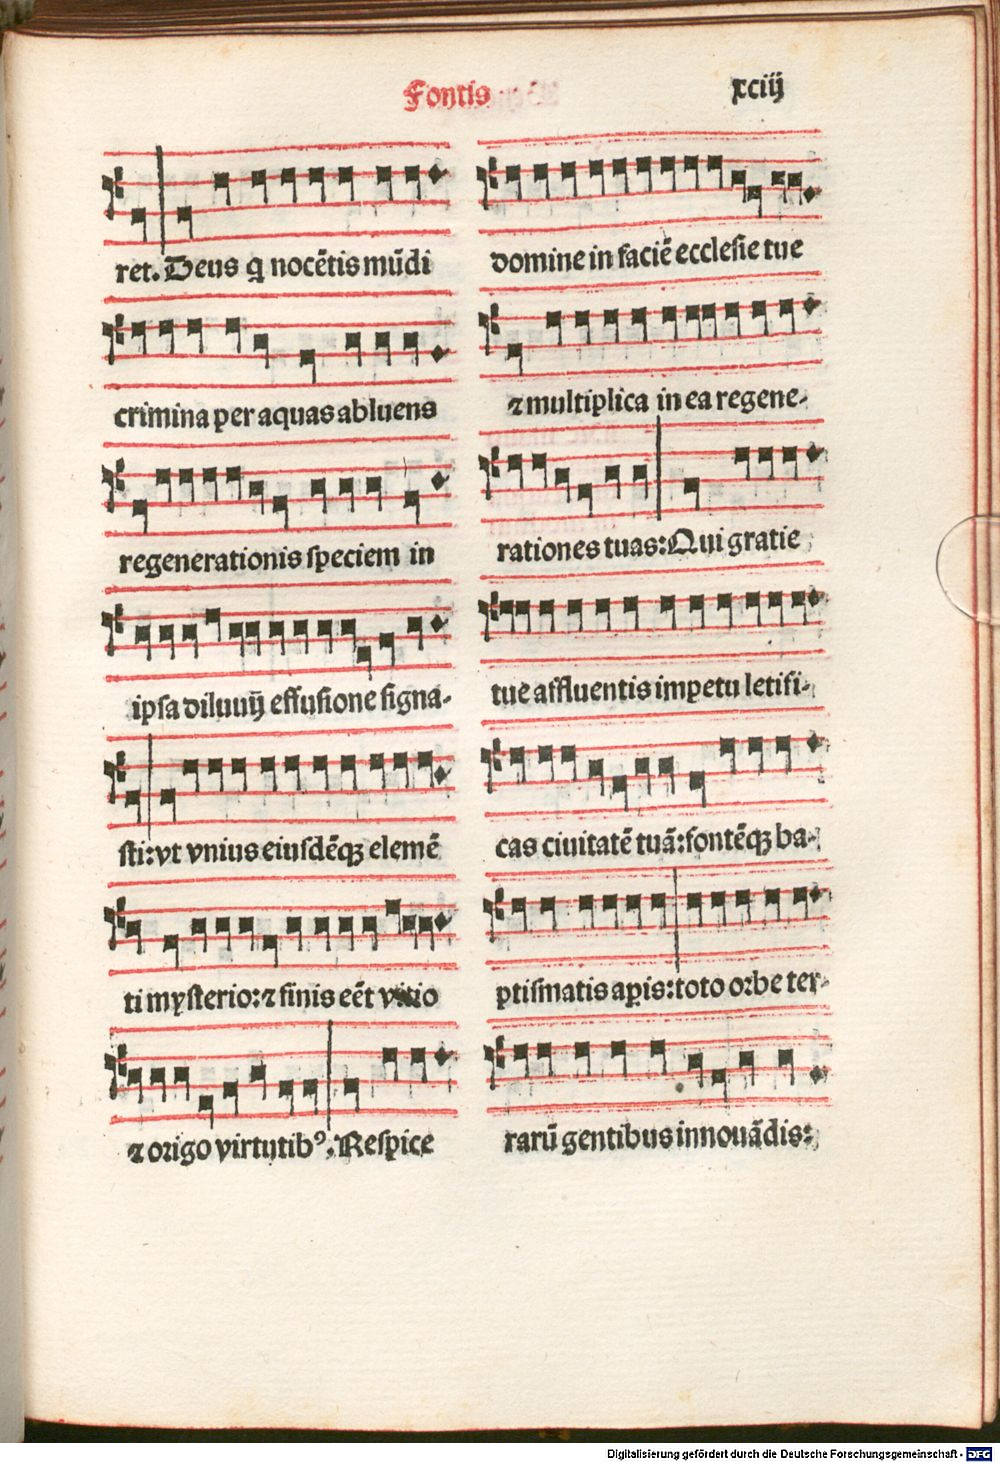 Fontis
xciij
ret. Deus q̄ nocētis mūdi
crimina per aquas abluens
regenerationis speciem in
ipsa diluuij effusione signa-
sti: vt vnius eiusdēqꝫ elemē
ti mysterio: ⁊ finis eēt vitio
⁊ origo virtutibꝰ. Respice
domine in faciē ecclesie tue
⁊ multiplica in ea regene-
rationes tuas: Qui gratie
tue affluentis impetu letifi-
cas ciuitatē tuā: fontēqꝫ ba-
ptismatis apis: toto orbe ter-
rarū gentibus innouādis:
Digitalisierung gefördert durch die Deutsche Forschungsgemeinschaft - DFG